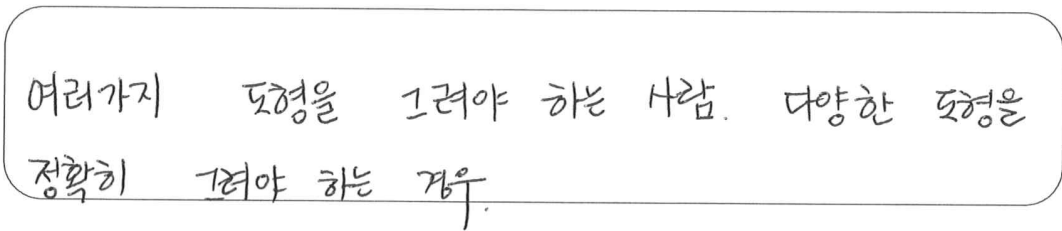 여러가지 도형을 그려야 하는 사람. 다양한 도형을
정확히 그려야 하는 경우.